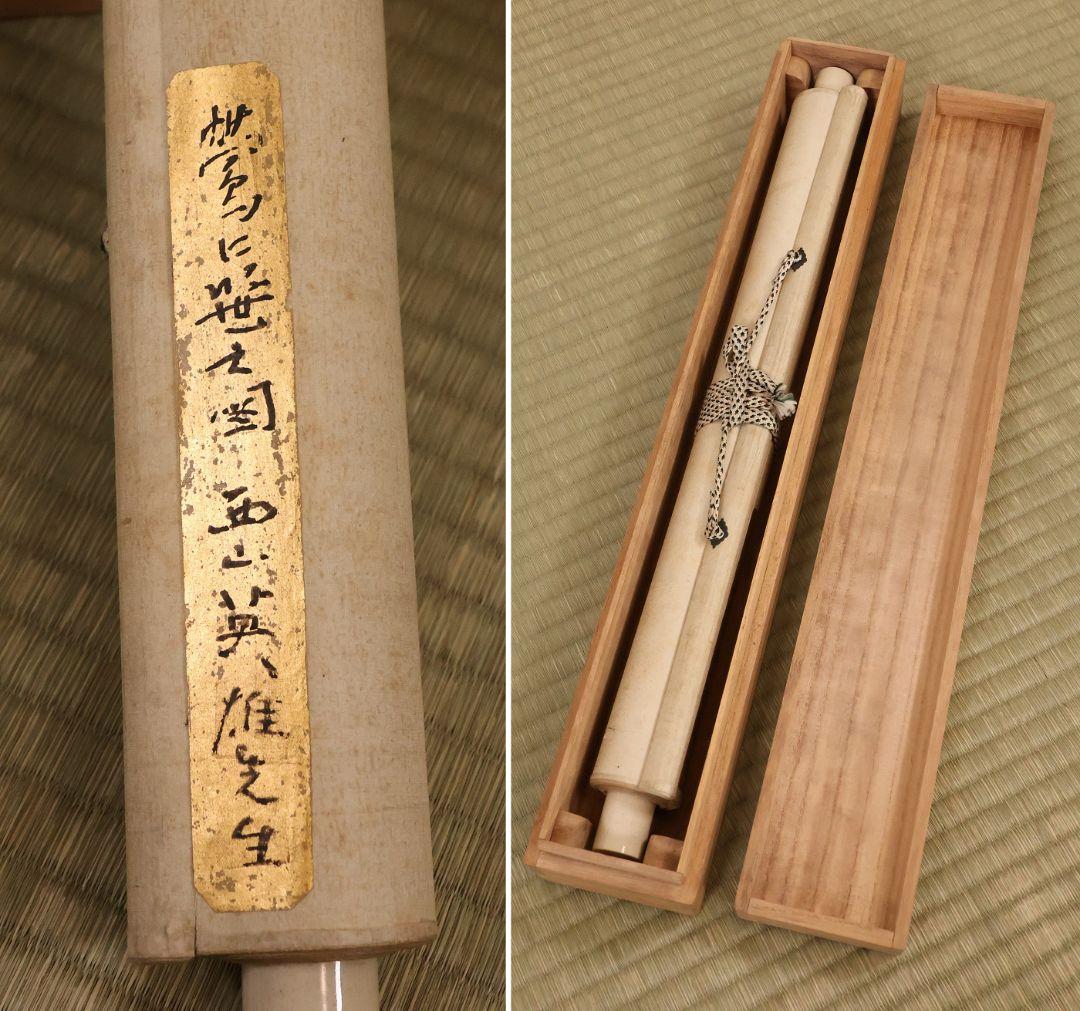 鶯に笹之図 西山英雄先生